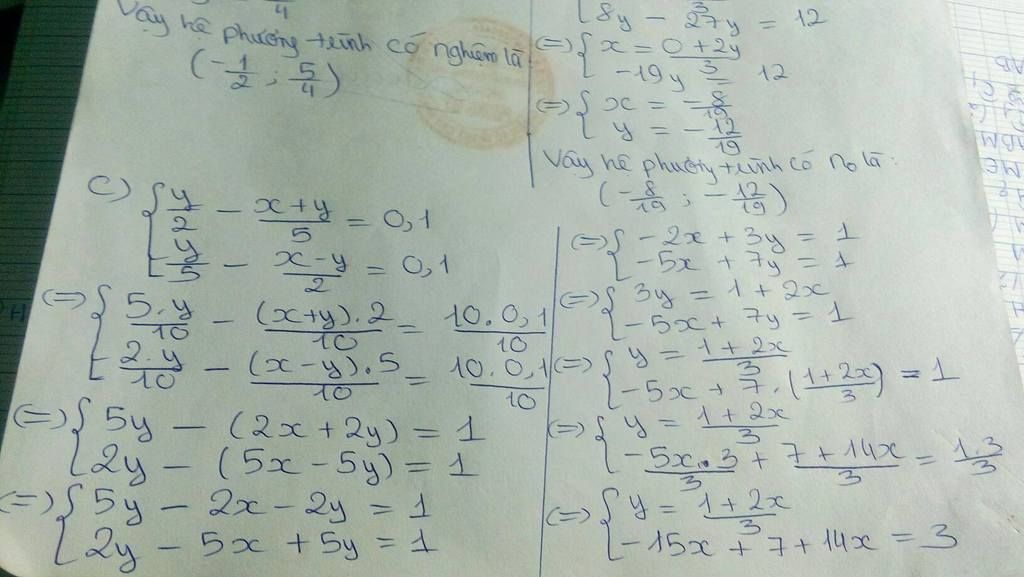 4
Vậy hệ phương trình có nghiệm là
(-1/2 ; 5/4)
c) { y/2 - (x+y)/5 = 0,1
{ y/5 - (x-y)/2 = 0,1
<=> { 5.y/10 - (x+y).2/10 = 10.0,1/10
{ 2.y/10 - (x-y).5/10 = 10.0,1/10
<=> { 5y - (2x+2y) = 1
{ 2y - (5x-5y) = 1
<=> { 5y - 2x - 2y = 1
{ 2y - 5x + 5y = 1
{ 8y - 27y = 12
<=> { x = (0+2y)/3
{ -19y = 12
<=> { x = -8/19
{ y = -12/19
Vậy hệ phương trình có no là:
(-8/19 ; -12/19)
<=> { -2x + 3y = 1
{ -5x + 7y = 1
<=> { 3y = 1 + 2x
{ -5x + 7y = 1
<=> { y = (1+2x)/3
{ -5x + 7.((1+2x)/3) = 1
<=> { y = (1+2x)/3
{ -5x.3/3 + (7+14x)/3 = 1.3/3
<=> { y = (1+2x)/3
{ -15x + 7 + 14x = 3